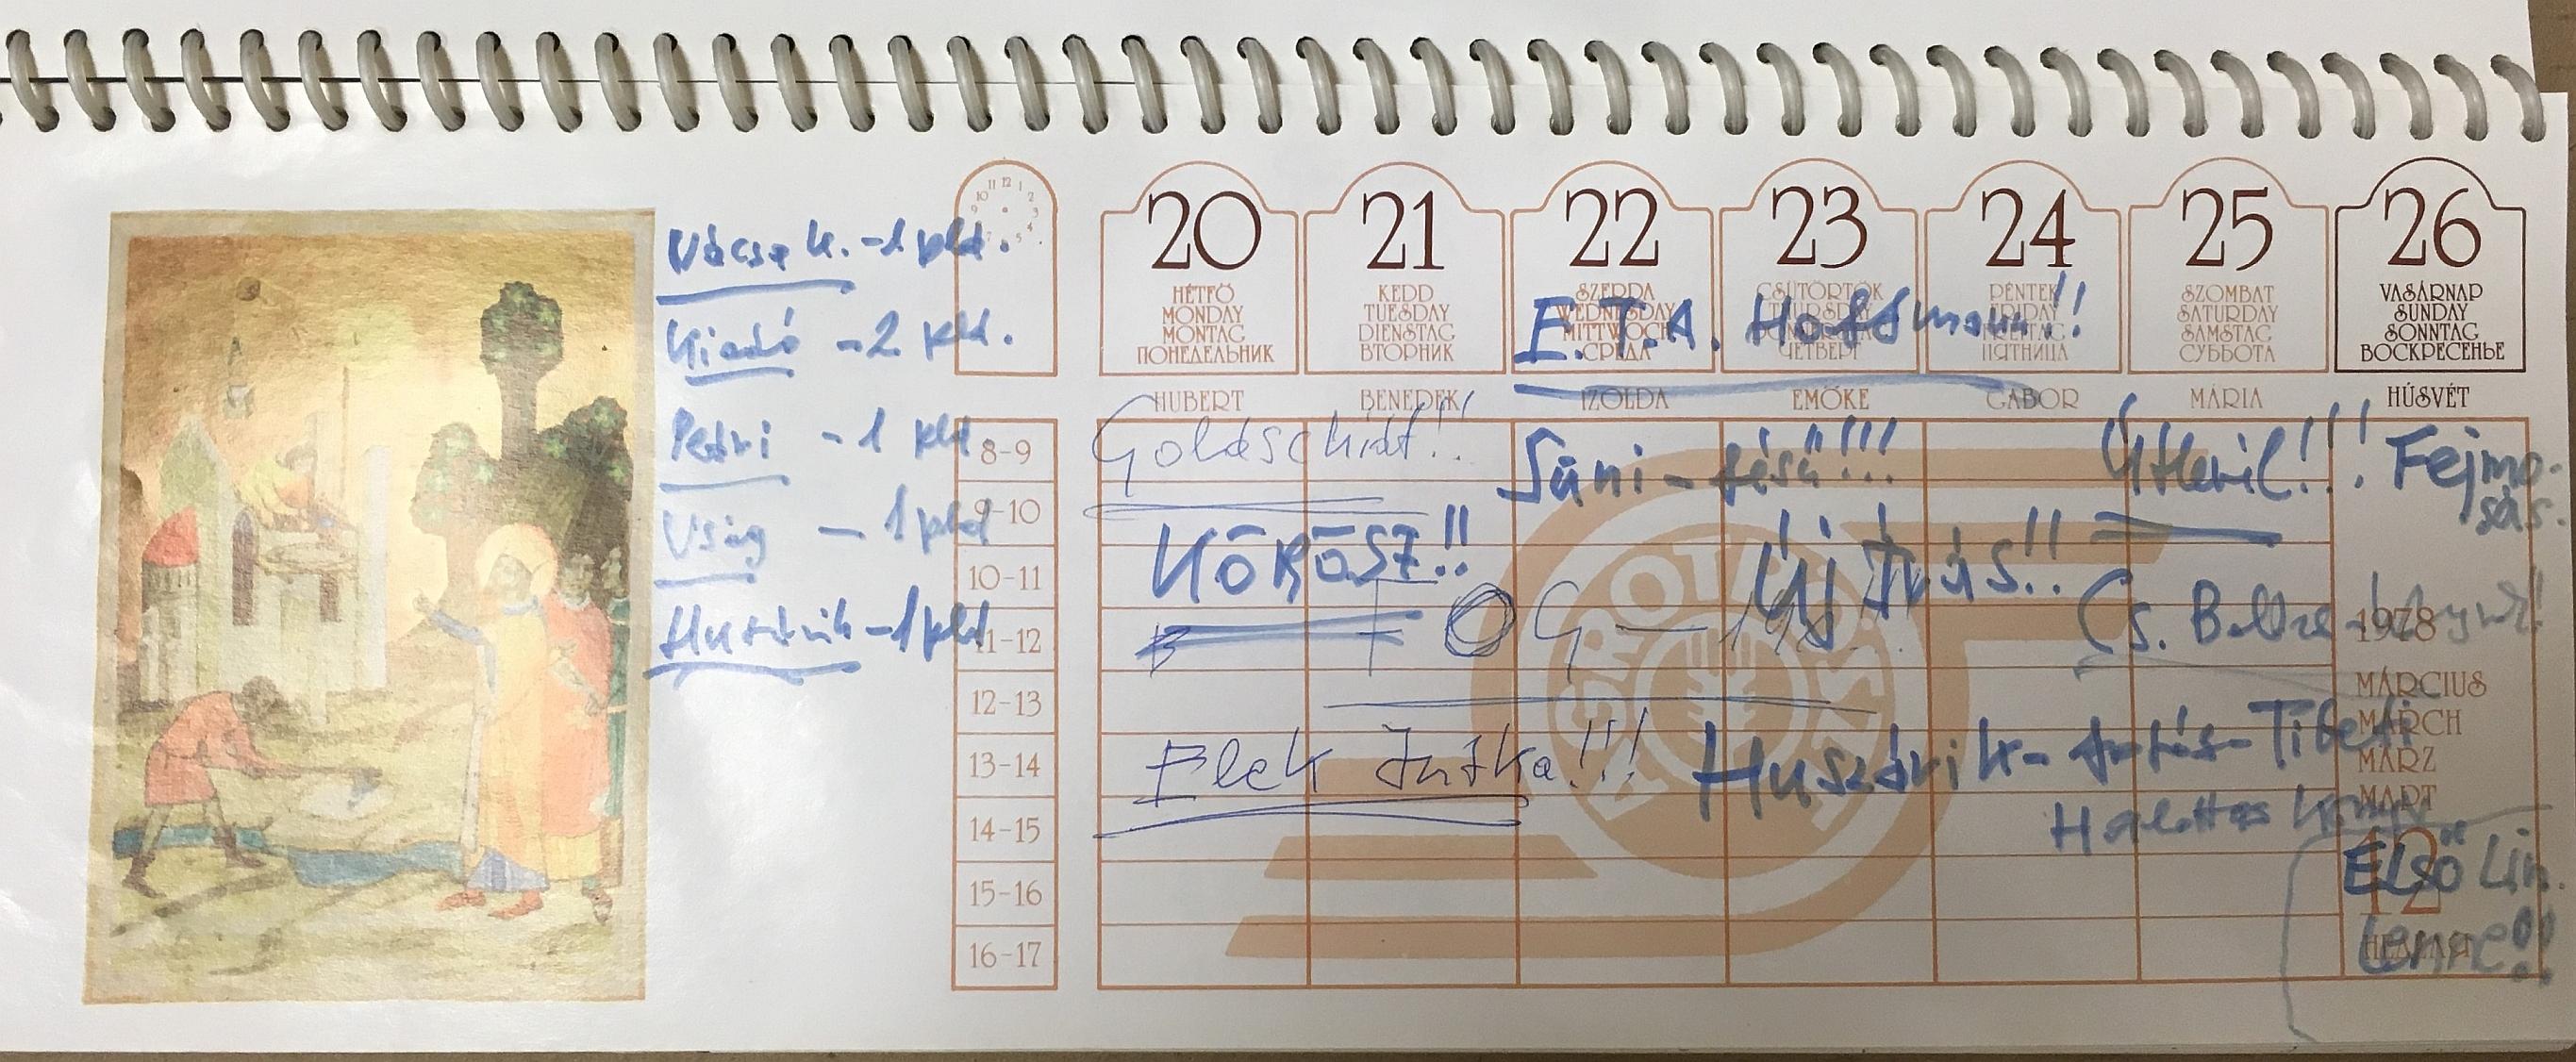 Vácsa K. -1 pld.
Kiadó -2 pld.
Petri -1 pld
-1 pld
Huszárik -1 pld
12 1 2 3 4 5 9 10 11
20 21 22 23 24 25 26
HÉTFŐ KEDD SZERDA CSÜTÖRTÖK PÉNTEK SZOMBAT VASÁRNAP
MONDAY TUESDAY WEDNESDAY THURSDAY FRIDAY SATURDAY SUNDAY
MONTAG DIENSTAG MITTWOCH DONNERSTAG FREITAG SAMSTAG SONNTAG
ПОНЕДЕЛЬНИК ВТОРНИК СРЕДА ЧЕТВЕРГ ПЯТНИЦА СУББОТА ВОСКРЕСЕНЬЕ
E.T.A. Hoffmann!!
HUBERT BENEDEK IZOLDA EMŐKE GÁBOR MÁRIA HÚSVÉT
8-9
9-10
10-11
11-12
12-13
13-14
14-15
15-16
16-17
Goldschidt!!
Süni-fésű!!!
Útlevil!!!
Fejmo-
sás.
KŐRÖSZ!!
Új Írás!!
OG
Cs. B
Elek Jutka!!!
Huszárik - Tibeti
Halottas könyv
ELSŐ Lin.
lenne!!
1978
MÁRCIUS
MARCH
MÄRZ
МАРТ
12
НЕДЕЛЯ